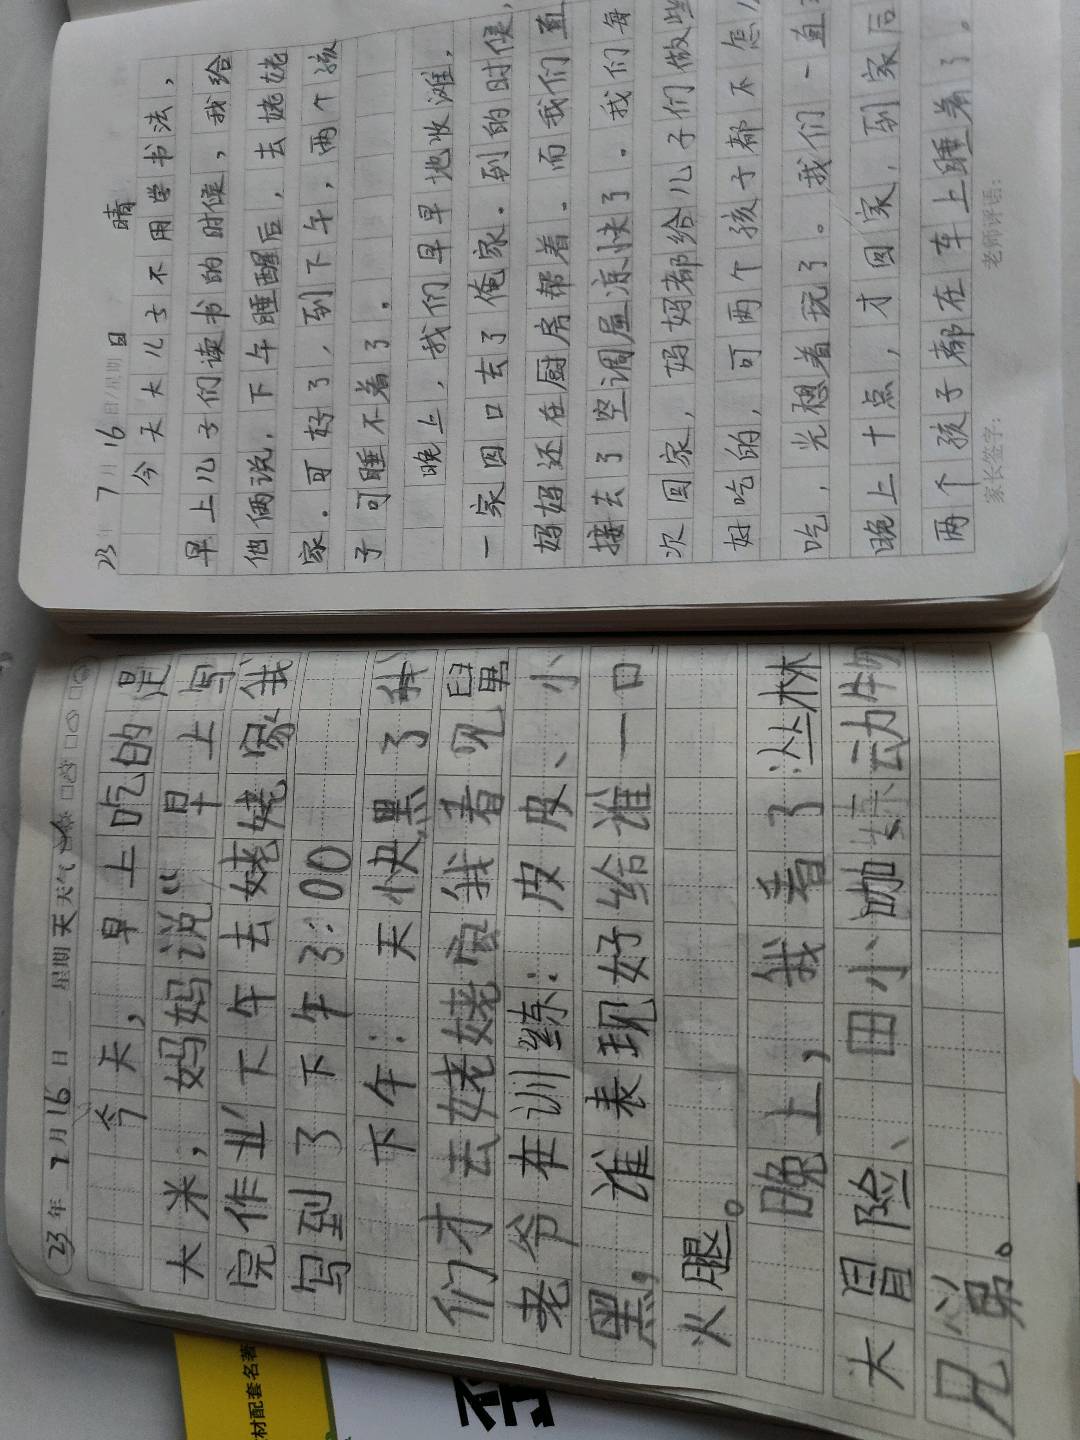 23年 7月16日 星期日 晴
今天大儿子不用学书法，
早上儿子们读书的时候，我给
他俩说，下午睡醒后，去姥姥
家。可好了，到下午，两个孩
子可睡不着了。
晚上，我们早早地收滩，
一家四口去了俺家。到的时候，
妈妈还在厨房帮着。而我们直
接去了空调屋凉快了。我们每
次回家，妈妈都给儿子们做些
好吃的，可两个孩子都不怎么
吃，光想着玩了。我们一直
晚上十点，才回家，到家后
两个孩子都在车上睡着了。
家长签字： 老师评语：
23年 7月16日 星期天 天气
今天，早上吃的是
大米，妈妈说“早上写
完作业”下午去姥姥家我
写到了下午3:00
下午：天快黑了我
们才去姥姥姥家我看见舅
老爷在训练：皮皮、小
黑，谁表现好给谁一口
火腿。
晚上，我看了丛林
大冒险、田小咖东动物
兄弟。
材配套名著